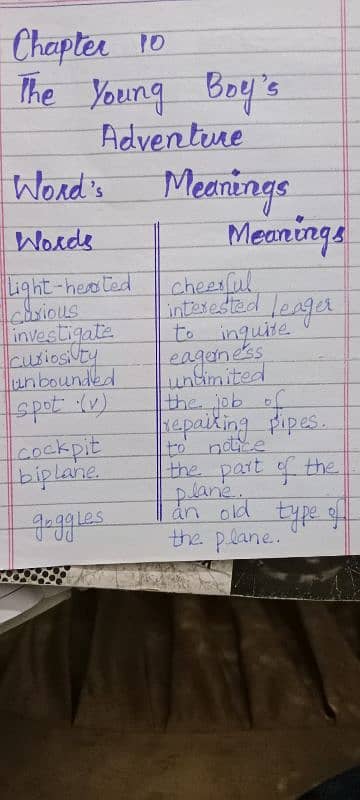 Chapter 10
The Young Boy's
Adventure
Word's Meanings
Words Meanings
Light-hearted cheerful
curious interested / eager
investigate to inquire
curiosity eagerness
unbounded unlimited
spot (v) the job of
repairing pipes.
cockpit to notice
biplane. the part of the
plane.
goggles an old type of
the plane.